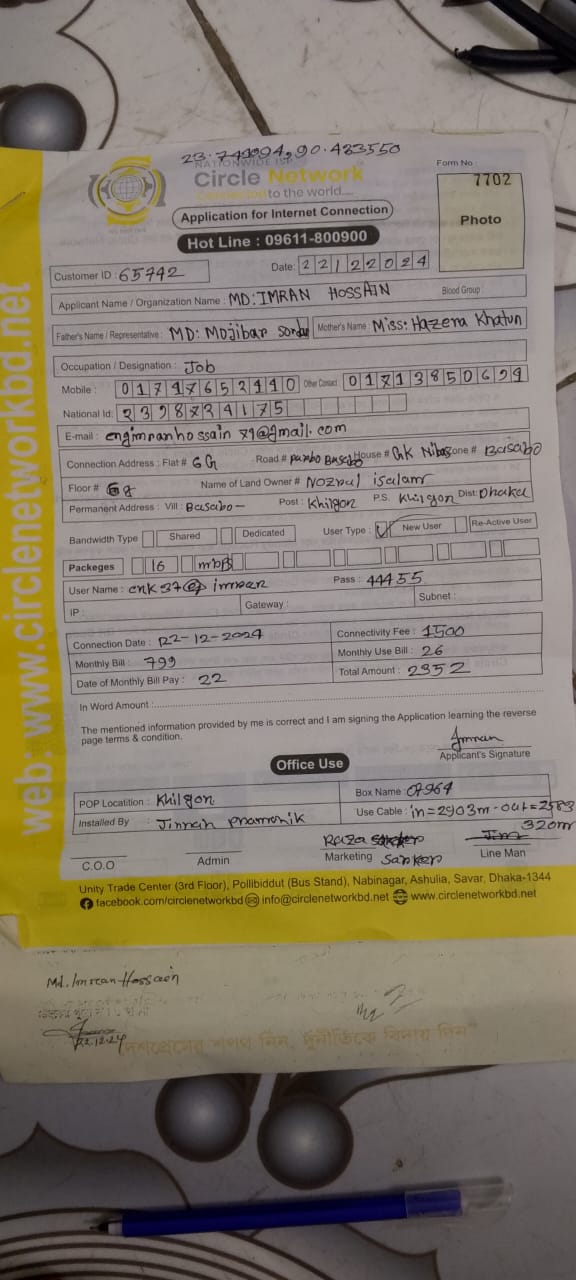 23.749094,90.433550
NATIONWIDE ISP
Circle Network
Connection to the world....
Form No :
7702
Photo
Application for Internet Connection
Hot Line : 09611-800900
Customer ID : 65742
Date: 22122024
Applicant Name / Organization Name : MD: IMRAN HOSSAIN Blood Group :
Father's Name / Representative : MD: Mojibar Mother's Name : Miss: Hazera Khatun
Occupation / Designation : Job
Mobile : Other Contact
National Id:
E-mail :
Connection Address : Flat # 6G Road # House # Zone # Basabo
Floor # Name of Land Owner # Nozrul islam
Permanent Address : Vill : Basabo - Post : Khilgon P.S. Khilgon Dist: Dhaka
Bandwidth Type Shared Dedicated User Type : New User Re-Active User
Packeges 16 mbps
User Name : Pass : 44455
IP : Gateway : Subnet :
Connection Date : 22-12-2024 Connectivity Fee : 1500
Monthly Bill : 799 Monthly Use Bill : 26
Date of Monthly Bill Pay : 22 Total Amount : 2352
In Word Amount :
The mentioned information provided by me is correct and I am signing the Application learning the reverse
page terms & condition.
Imran
Applicant's Signature
Office Use
POP Locatition : Khilgon Box Name : 07964
Installed By : Jinnah pramonik Use Cable : in=2903m-out=2583
320m
Raza
C.O.O Admin Marketing Sarker Line Man
Unity Trade Center (3rd Floor), Pollibiddut (Bus Stand), Nabinagar, Ashulia, Savar, Dhaka-1344
facebook.com/circlenetworkbd info@circlenetworkbd.net www.circlenetworkbd.net
web: www.circlenetworkbd.net
Md. Imran Hossain
22.12.24
দেশপ্রেমের শপথ নিন, দুর্নীতিকে বিদায় দিন